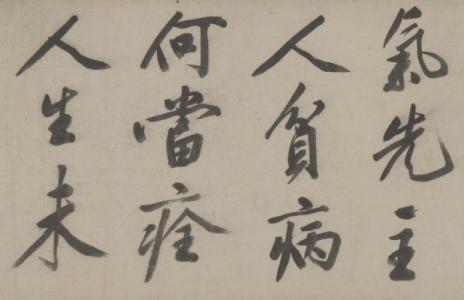 氣先主
人貧病
何當痊
人生未